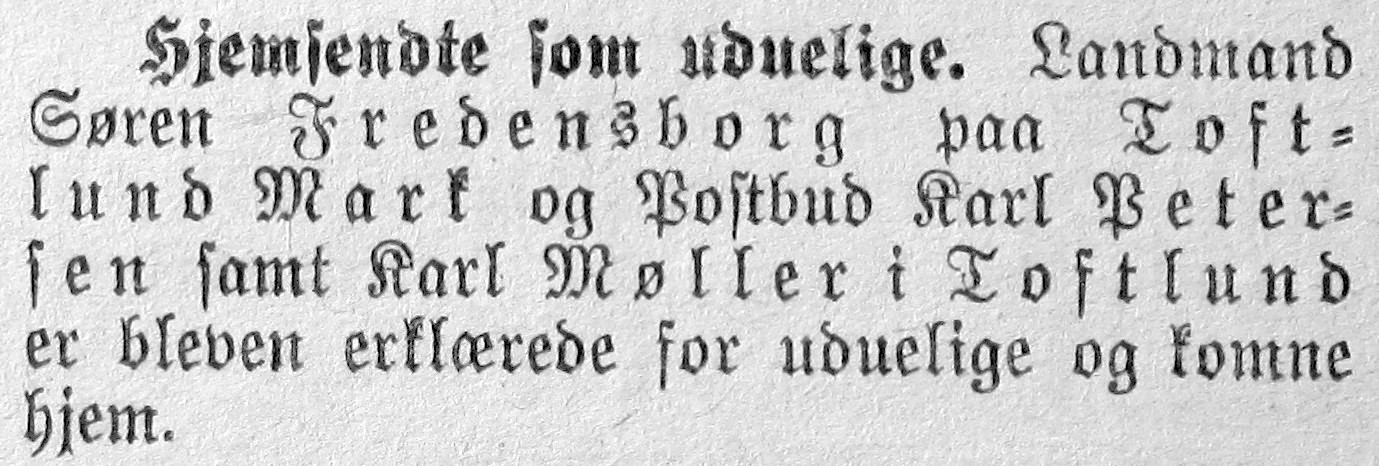 Hjemsendte som uduelige. Landmand
Søren Fredensborg paa Toft-
lund Mark og Postbud Karl Peter-
sen samt Karl Møller i Toftlund
er bleven erklærede for uduelige og komne
hjem.